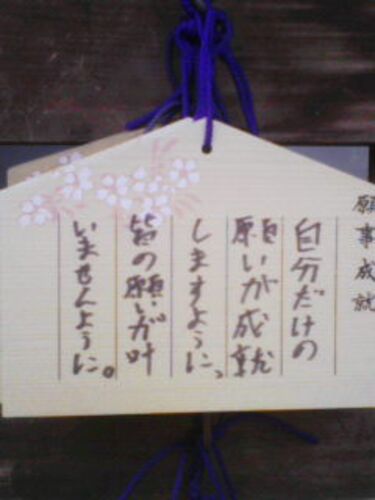 願事成就
自分だけの
願いが成就
しますように、
皆の願いが叶
いませんように。